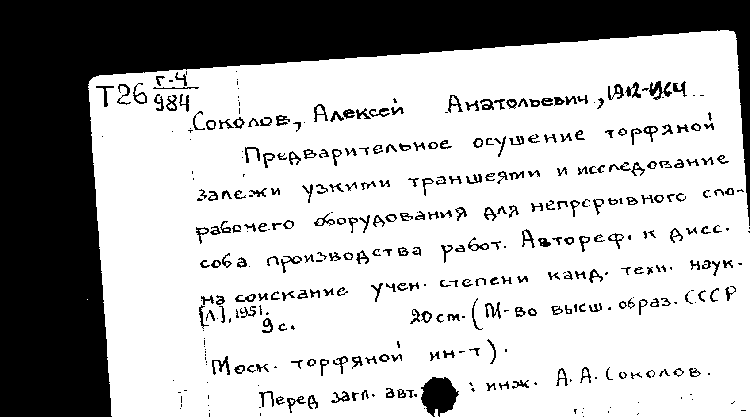 Т26 г-4/984
Соколов, Алексей Анатольевич, 1912-1964
Предварительное осушение торфяной
залежи узкими траншеями и исследование
рабочего оборудования для непрерывного спо-
соба производства работ. Автореф. к дисс.
на соискание учен. степени канд. техн. наук.
[Л.], 1951.
9с. 20 см. (М-во высш. образ. СССР
Моск. торфяной ин-т).
Перед загл. авт. : инж. А. А. Соколов.